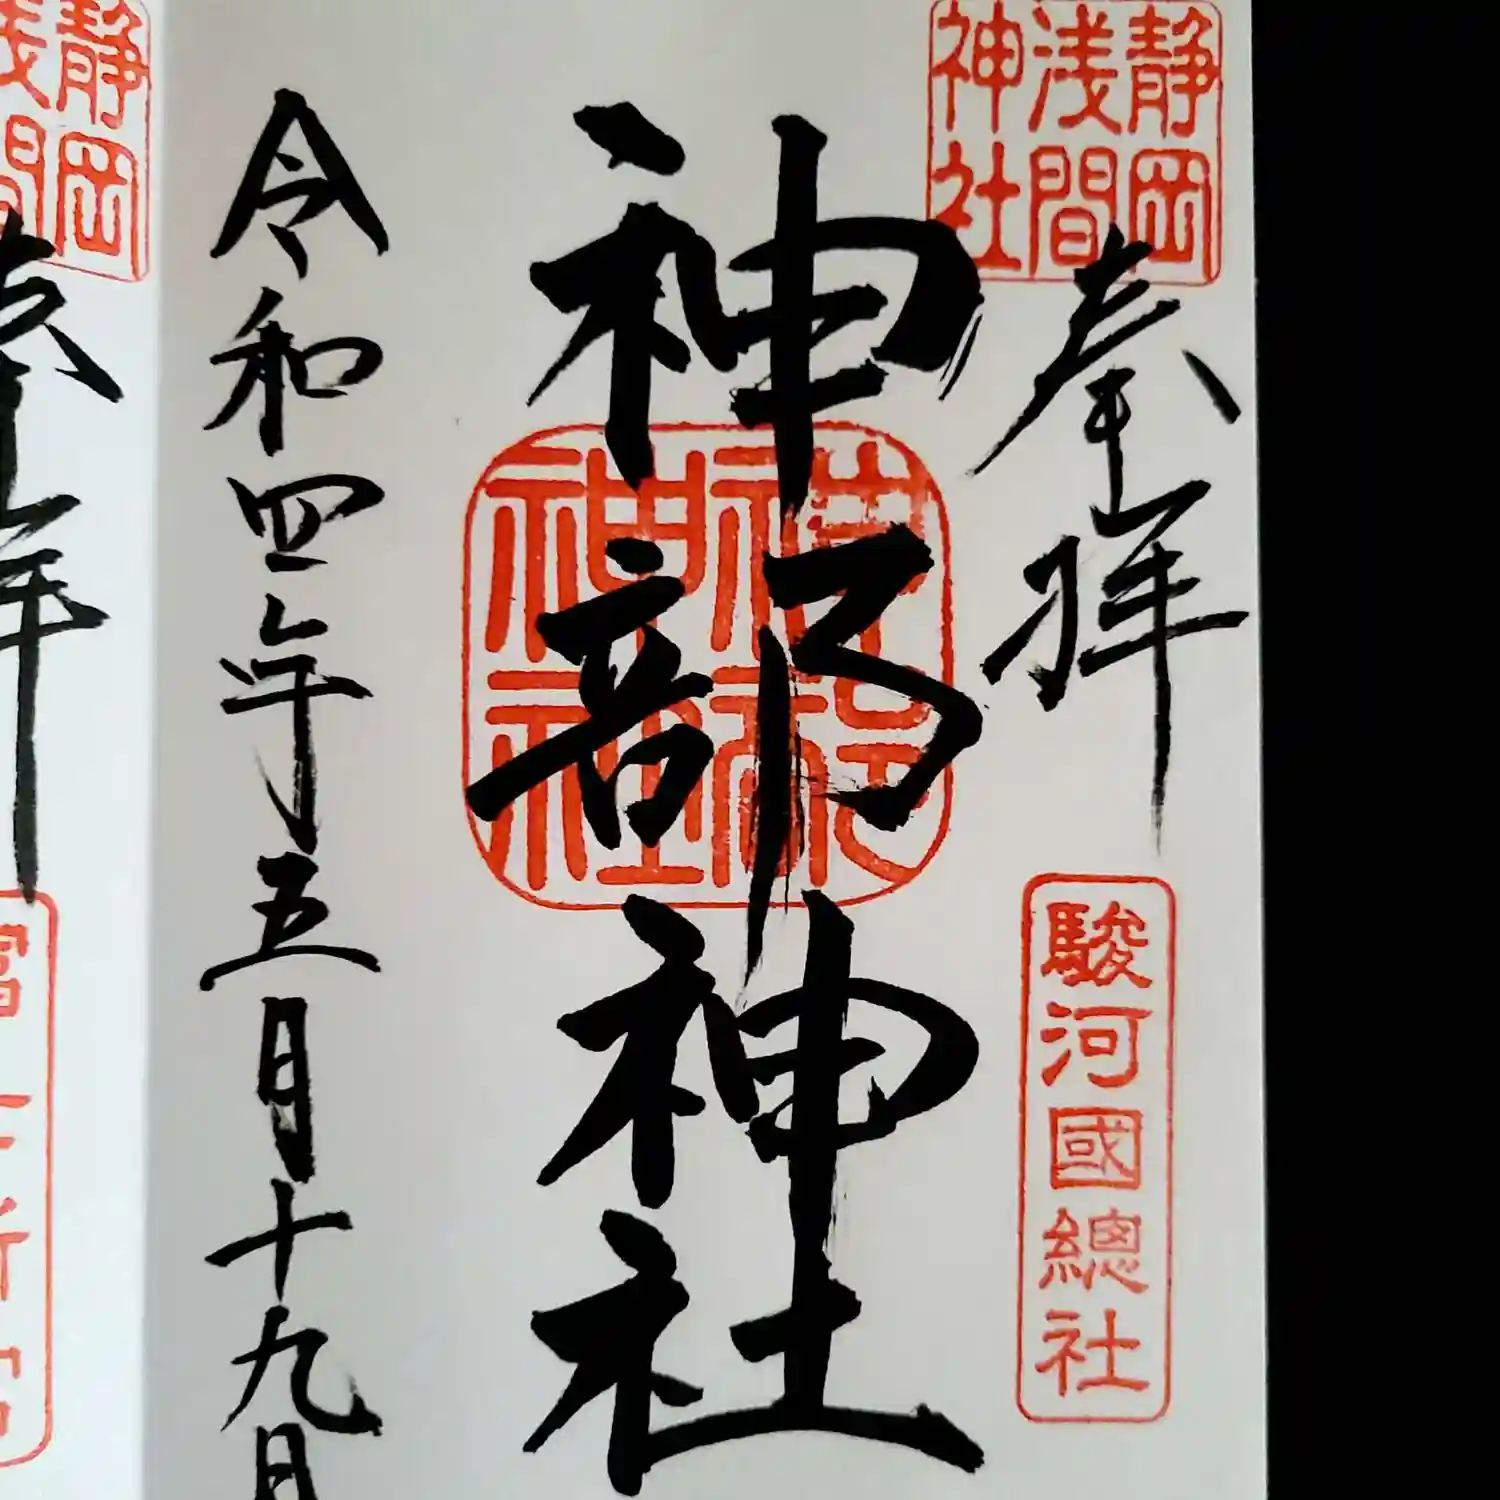 静岡
浅間
神社
奉拝
駿河國總社
神部神社
神部
神社
令和四年五月十九日
静岡
浅間
奉拝